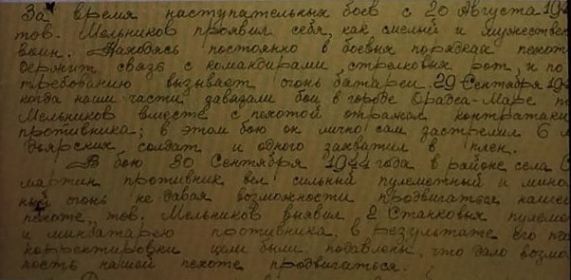 За время наступательных боев с 20 Августа 194
тов. Мельников проявил себя, как смелый и мужествен
воин. Находясь постоянно в боевых порядках пехот
держит связь с командирами стрелковых рот, и по
требованию вызывает огонь батареи. 29 Сентября 194
когда наши части завязали бои в городе Орадеа-Маре т
Мельников вместе с пехотой отражал контратаки
противника; в этом бою он лично сам застрелил 6 м
дьярских солдат и одного захватил в плен.
В бою 30 Сентября 1944 года в районе села С
мартин противник вел сильный пулеметный и мино
ный огонь не давая возможности продвигаться нашей
пехоте, тов. Мельников выявил 2 Станковых пулеме
и минбатарею противника. в результате его
корректировки цели были подавлены, что дало возмо
ность нашей пехоте продвигаться.